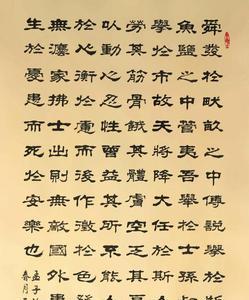 舜發於畎畝之中傅說舉於
魚鹽之中管夷吾舉於士孫
舉於市故天將降大任於斯人
勞其筋骨餓其體膚空乏其
以動心忍性曾益其所不能人
於心衡於慮而後作徵於色發
無灋家拂士出則無敵國外患
生於憂患而死於安樂也
孟子
春月